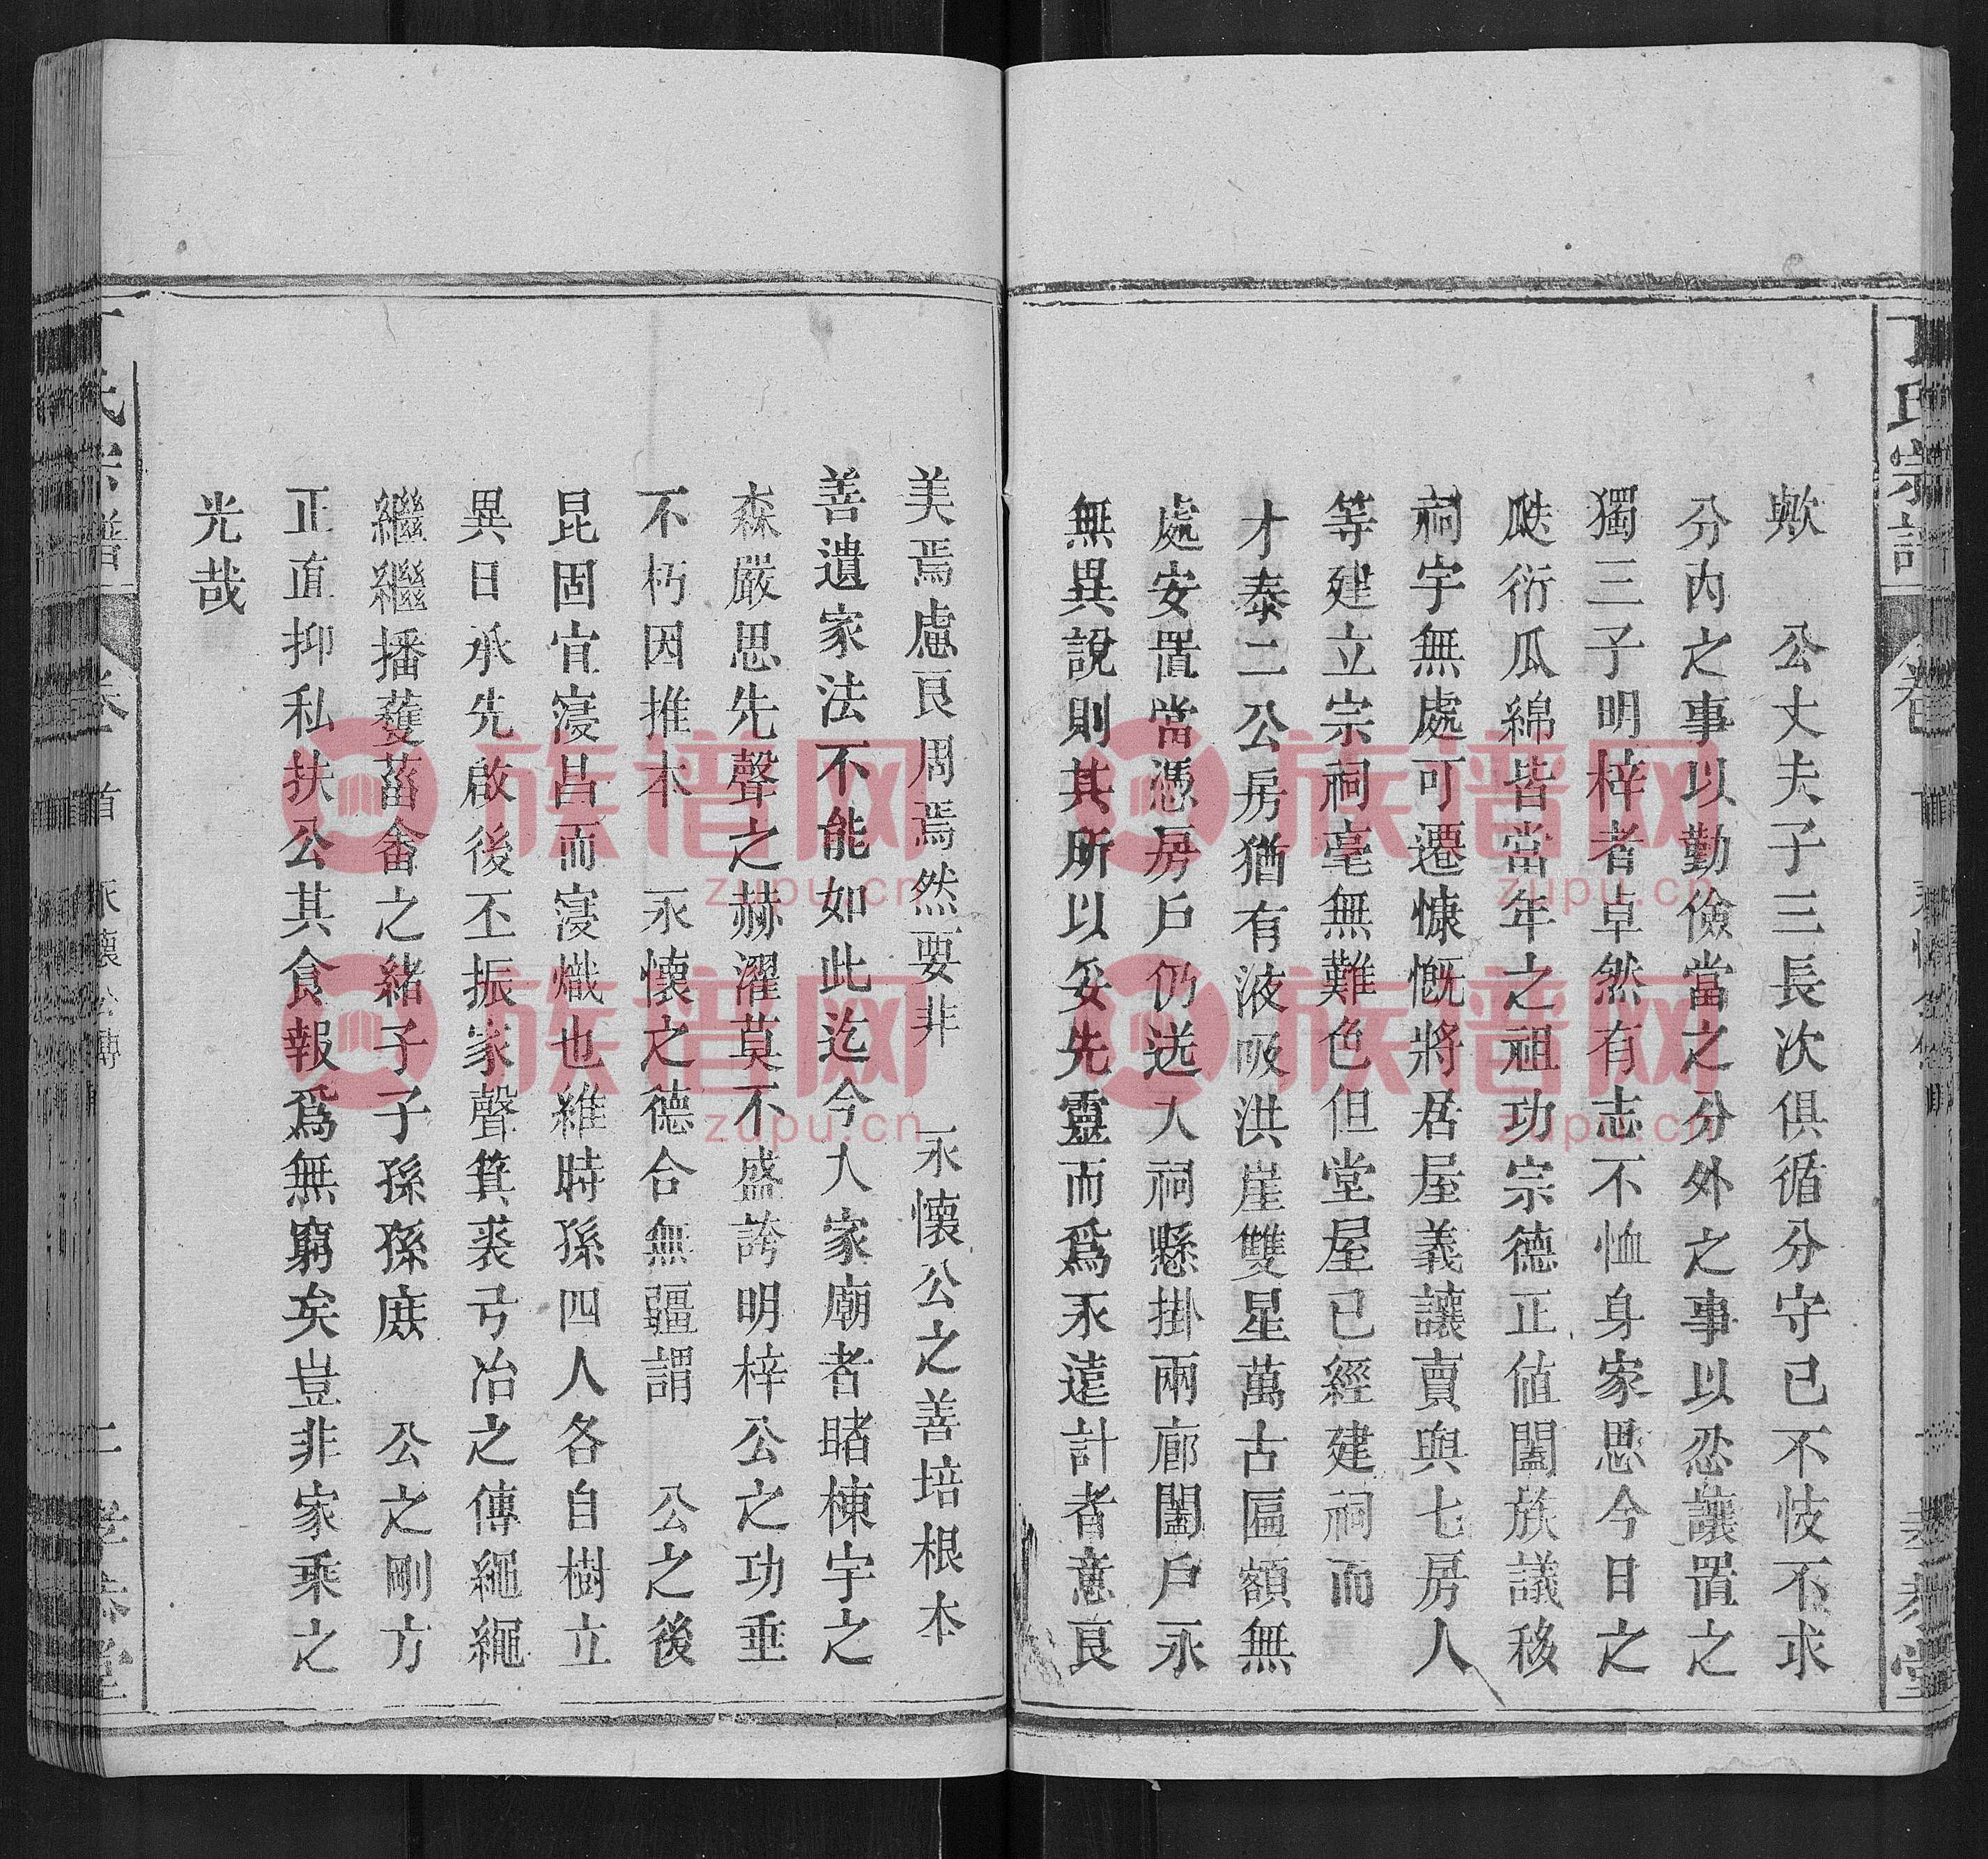 丁氏宗譜
歟　公丈夫子三長次俱循分守已不忮不求
分內之事以勤儉當之分外之事以忍讓置之
獨三子明梓者卓然有志不恤身家思今日之
瓞衍瓜綿皆當年之祖功宗德正値闔族議移
祠宇無處可遷慷慨將居屋義讓賣與七房人
等建立宗祠毫無難色但堂屋已經建祠而
才泰二公房猶有液吸洪崖雙星萬古匾額無
處安置當憑房戶仍送人祠懸掛兩廊闔戶永
無異說則其所以妥先靈而爲永遠計者意良
美焉慮良周焉然要非　永懷公之善培根本
善遺家法不能如此迄今人家廟者睹棟宇之
森嚴思先聲之赫濯莫不盛誇明梓公之功垂
不朽因推本　永懷之德合無疆謂　公之後
昆固宜寖昌而寖熾也維時孫四人各自樹立
異日承先啟後丕振家聲箕裘弓冶之傳繩繩
繼繼播蒦菑畬之緒子子孫孫庶　公之剛方
正直抑私扶公其食報爲無窮矣豈非家乘之
光哉
氏宗譜
卷首　永懷公傳
二
堂
族谱网
zupu.cn
族谱网
zupu.cn
族谱网
zupu.cn
族谱网
zupu.cn